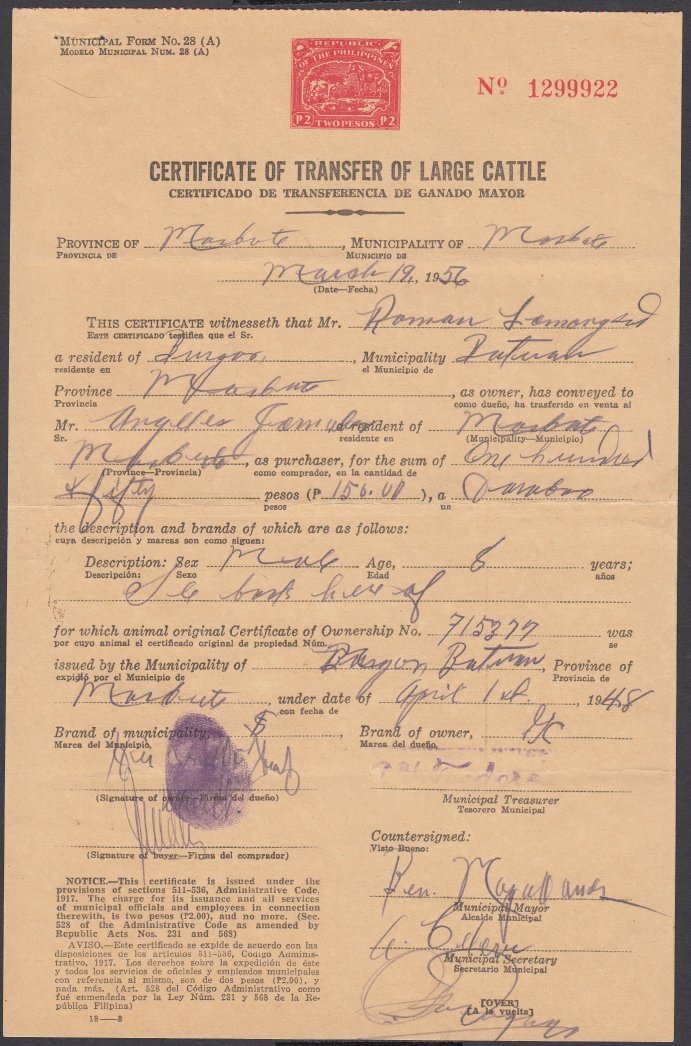 MUNICIPAL FORM NO. 28 (A)
MODELO MUNICIPAL NUM. 28 (A)
REPUBLIC
OF THE PHILIPPINES
₱2 TWO PESOS ₱2
Nº 1299922
CERTIFICATE OF TRANSFER OF LARGE CATTLE
CERTIFICADO DE TRANSFERENCIA DE GANADO MAYOR
PROVINCE OF Masbate, MUNICIPALITY OF Masbate
PROVINCIA DE MUNICIPIO DE
March 19, 1956
(Date—Fecha)
THIS CERTIFICATE witnesseth that Mr. Roman
ESTE CERTIFICADO testifica que el Sr.
a resident of Burgos, Municipality Batuan
residente en el Municipio de
Province Masbate, as owner, has conveyed to
Provincia como dueño, ha trasferido en venta al
Mr. Angeles a resident of Masbate
Sr. residente en (Municipality—Municipio)
Masbate, as purchaser, for the sum of One hundred
(Province—Provincia) como comprador, en la cantidad de
& fifty pesos (₱ 150.00), a Carabao
pesos un
the description and brands of which are as follows:
cuya descripción y marcas son como siguen:
Description: Sex Male Age, 8 years;
Descripción: Sexo Edad años
See back hereof
for which animal original Certificate of Ownership No. 715377 was
por cuyo animal el certificado original de propiedad Núm. se
issued by the Municipality of Batuan, Province of
expidió por el Municipio de Provincia de
Masbate, under date of April 1st, 1948
con fecha de
Brand of municipality: Brand of owner,
Marca del Municipio, Marca del dueño,
(Signature of owner—Firma del dueño) Municipal Treasurer
Tesorero Municipal
(Signature of buyer—Firma del comprador)
Countersigned:
Visto Bueno:
Ben. Magallanes
Municipal Mayor
Alcalde Municipal
Municipal Secretary
Secretario Municipal
NOTICE.—This certificate is issued under the
provisions of sections 511-536, Administrative Code,
1917. The charge for its issuance and all services
of municipal officials and employees in connection
therewith, is two pesos (₱2.00), and no more. (Sec.
528 of the Administrative Code as amended by
Republic Acts Nos. 231 and 568)
AVISO.—Este certificado se expide de acuerdo con las
disposiciones de los artículos 511-536, Código Adminis-
trativo, 1917. Los derechos sobre la expedición de éste
y todos los servicios de oficiales y empleados municipales
con referencia al mismo, son de dos pesos (₱2.00), y
nada más. (Art. 528 del Código Administrativo como
fué enmendada por la Ley Núm. 231 y 568 de la Re-
pública Filipina)
18——3
[OVER]
[A la vuelta]